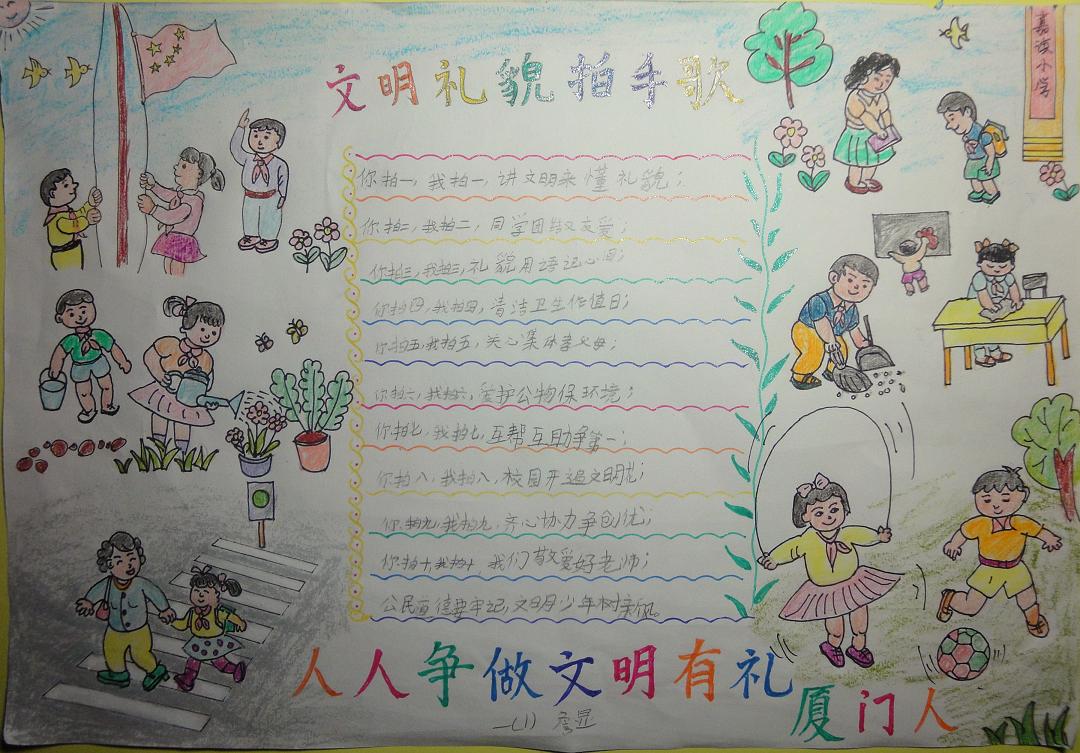 文明礼貌拍手歌
嘉滨小学
你拍一，我拍一，讲文明来懂礼貌；
你拍二，我拍二，同学团结又友爱；
你拍三，我拍三，礼貌用语记心间；
你拍四，我拍四，清洁卫生作值日；
你拍五，我拍五，关心集体孝父母；
你拍六，我拍六，爱护公物保环境；
你拍七，我拍七，互帮互助争第一；
你拍八，我拍八，校园开遍文明花；
你拍九，我拍九，齐心协力争创优；
你拍十，我拍十，我们敬爱好老师；
公民道德要牢记，文明少年树新风。
人人争做文明有礼
厦门人
一(1)